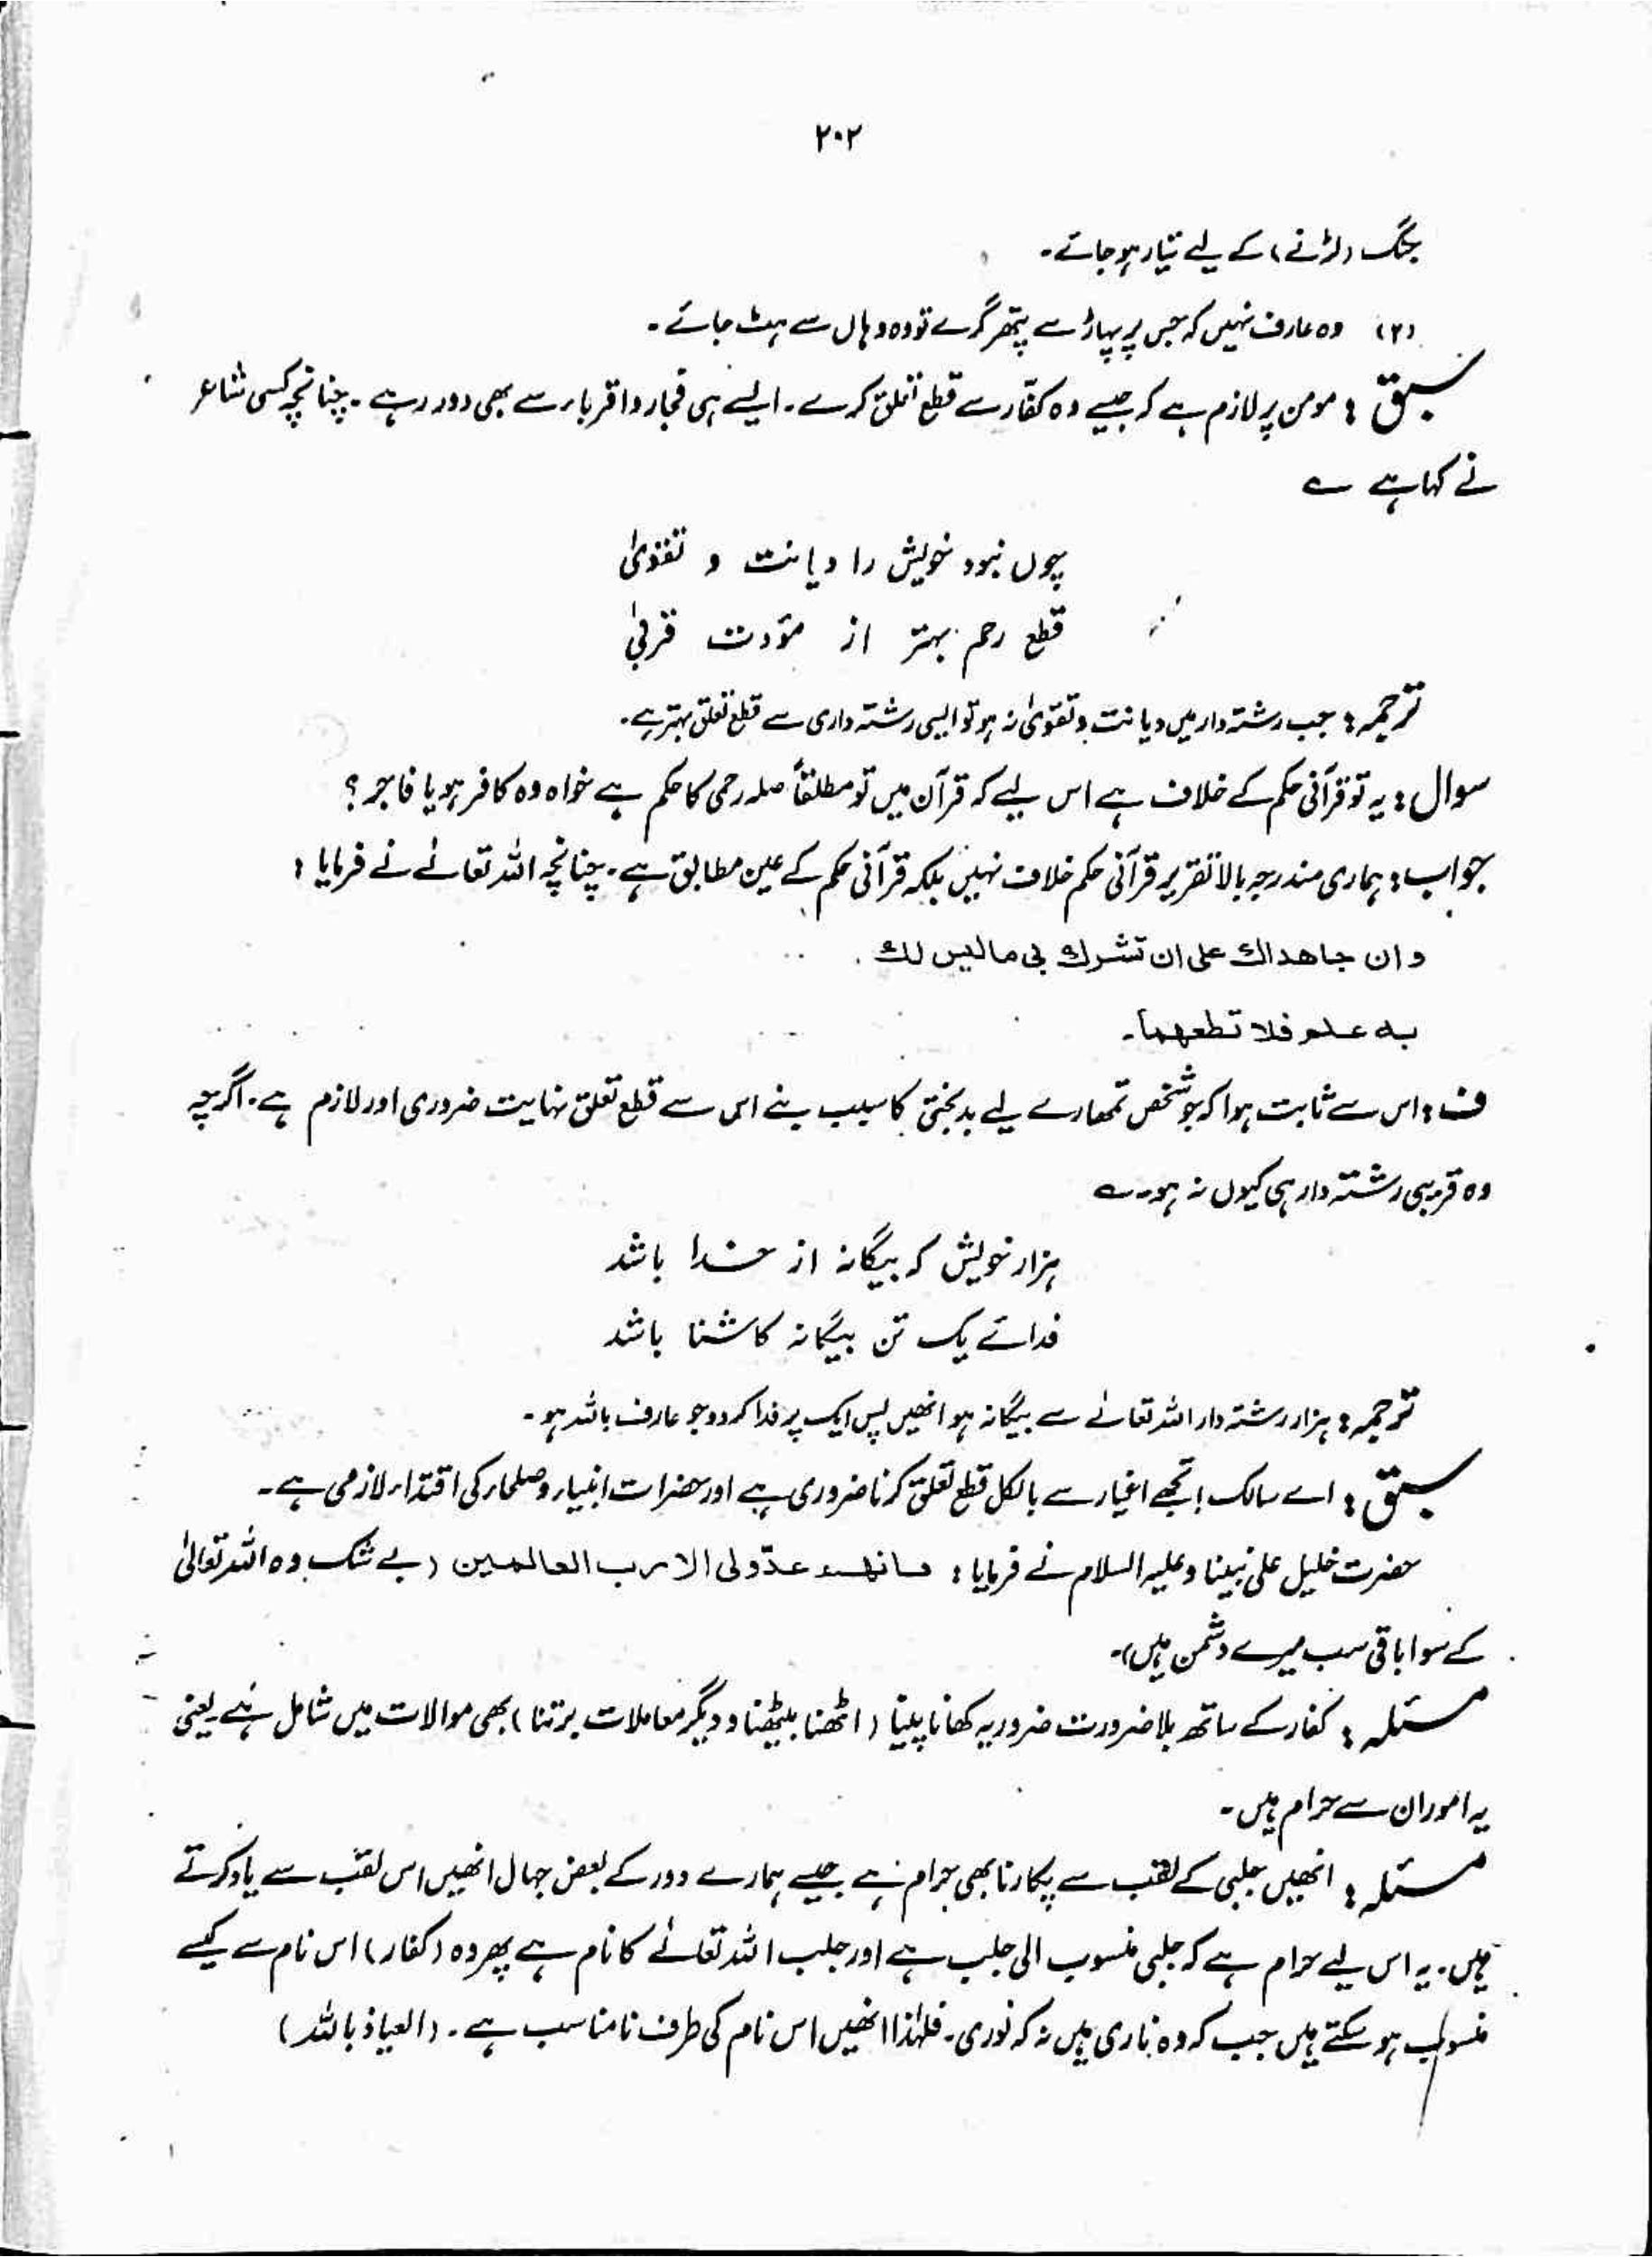 ۲۰۲
جنگ (لڑنے) کے لیے تیار ہو جائے۔
(۲) وہ عارف نہیں کہ جس پر پہاڑ سے پتھر گرے تو وہ وہاں سے ہٹ جائے۔
سبق : مومن پر لازم ہے کہ جیسے وہ کفّار سے قطع تعلق کرے۔ ایسے ہی فجار و اقرباء سے بھی دور رہے۔ چنانچہ کسی شاعر
نے کہا ہے ؎
چوں نبود خویش را دیانت و تقویٰ
قطع رحم بہتر از مؤدت قربیٰ
ترجمہ : جب رشتہ دار میں دیانت و تقویٰ نہ ہو تو ایسی رشتہ داری سے قطع تعلق بہتر ہے۔
سوال : یہ تو قرآنی حکم کے خلاف ہے اس لیے کہ قرآن میں تو مطلقاً صلہ رحمی کا حکم ہے خواہ وہ کافر ہو یا فاجر؟
جواب : ہماری مندرجہ بالا تقریر قرآنی حکم خلاف نہیں بلکہ قرآنی حکم کے عین مطابق ہے۔ چنانچہ اللہ تعالےٰ نے فرمایا :
و ان جاهداك على ان تشرك بى ماليس لك
به علم فلا تطعهما۔
ف : اس سے ثابت ہوا کہ جو شخص تمھارے لیے بدبختی کا سبب بنے اس سے قطع تعلق نہایت ضروری اور لازم ہے۔ اگرچہ
وہ قریبی رشتہ دار ہی کیوں نہ ہو۔ ؎
ہزار خویش کہ بیگانہ از خدا باشد
فدائے یک تن بیگانہ کاشنا باشد
ترجمہ : ہزار رشتہ دار اللہ تعالےٰ سے بیگانہ ہو انھیں بس ایک پر فدا کر دو جو عارف باللہ ہو۔
سبق : اے سالک ! تجھے اغیار سے بالکل قطع تعلق کرنا ضروری ہے اور حضرات انبیاء و صلحاء کی اقتداء لازمی ہے۔
حضرت خلیل علی نبینا و علیہ السلام نے فرمایا : فانهم عدّولى الا رب العالمين (بے شک وہ اللہ تعالیٰ
کے سوا باقی سب میرے دشمن ہیں)۔
مسئلہ : کفار کے ساتھ بلا ضرورت ضروریہ کھانا پینا (اٹھنا بیٹھنا و دیگر معاملات برتنا) بھی موالات میں شامل ہے یعنی
یہ امور ان سے حرام ہیں۔
مسئلہ : انھیں جلبی کے لقب سے پکارنا بھی حرام ہے جیسے ہمارے دور کے بعض جہال انھیں اس لقب سے یاد کرتے
ہیں۔ یہ اس لیے حرام ہے کہ جلبی منسوب الی جلب ہے اور جلب اللہ تعالےٰ کا نام ہے پھر وہ (کفار) اس نام سے کیسے
منسوب ہو سکتے ہیں جب کہ وہ ناری ہیں نہ کہ نوری۔ فلہٰذا انھیں اس نام کی طرف نامناسب ہے۔ (العیاذ باللہ)